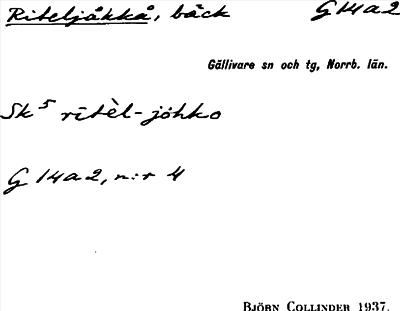 Riteljåkkå, bäck G 14 a 2
Gällivare sn och tg, Norrb. län.
Sk⁵ rītèl-jȯhko
G 14 a 2, n:r 4
BJÖRN COLLINDER 1937.